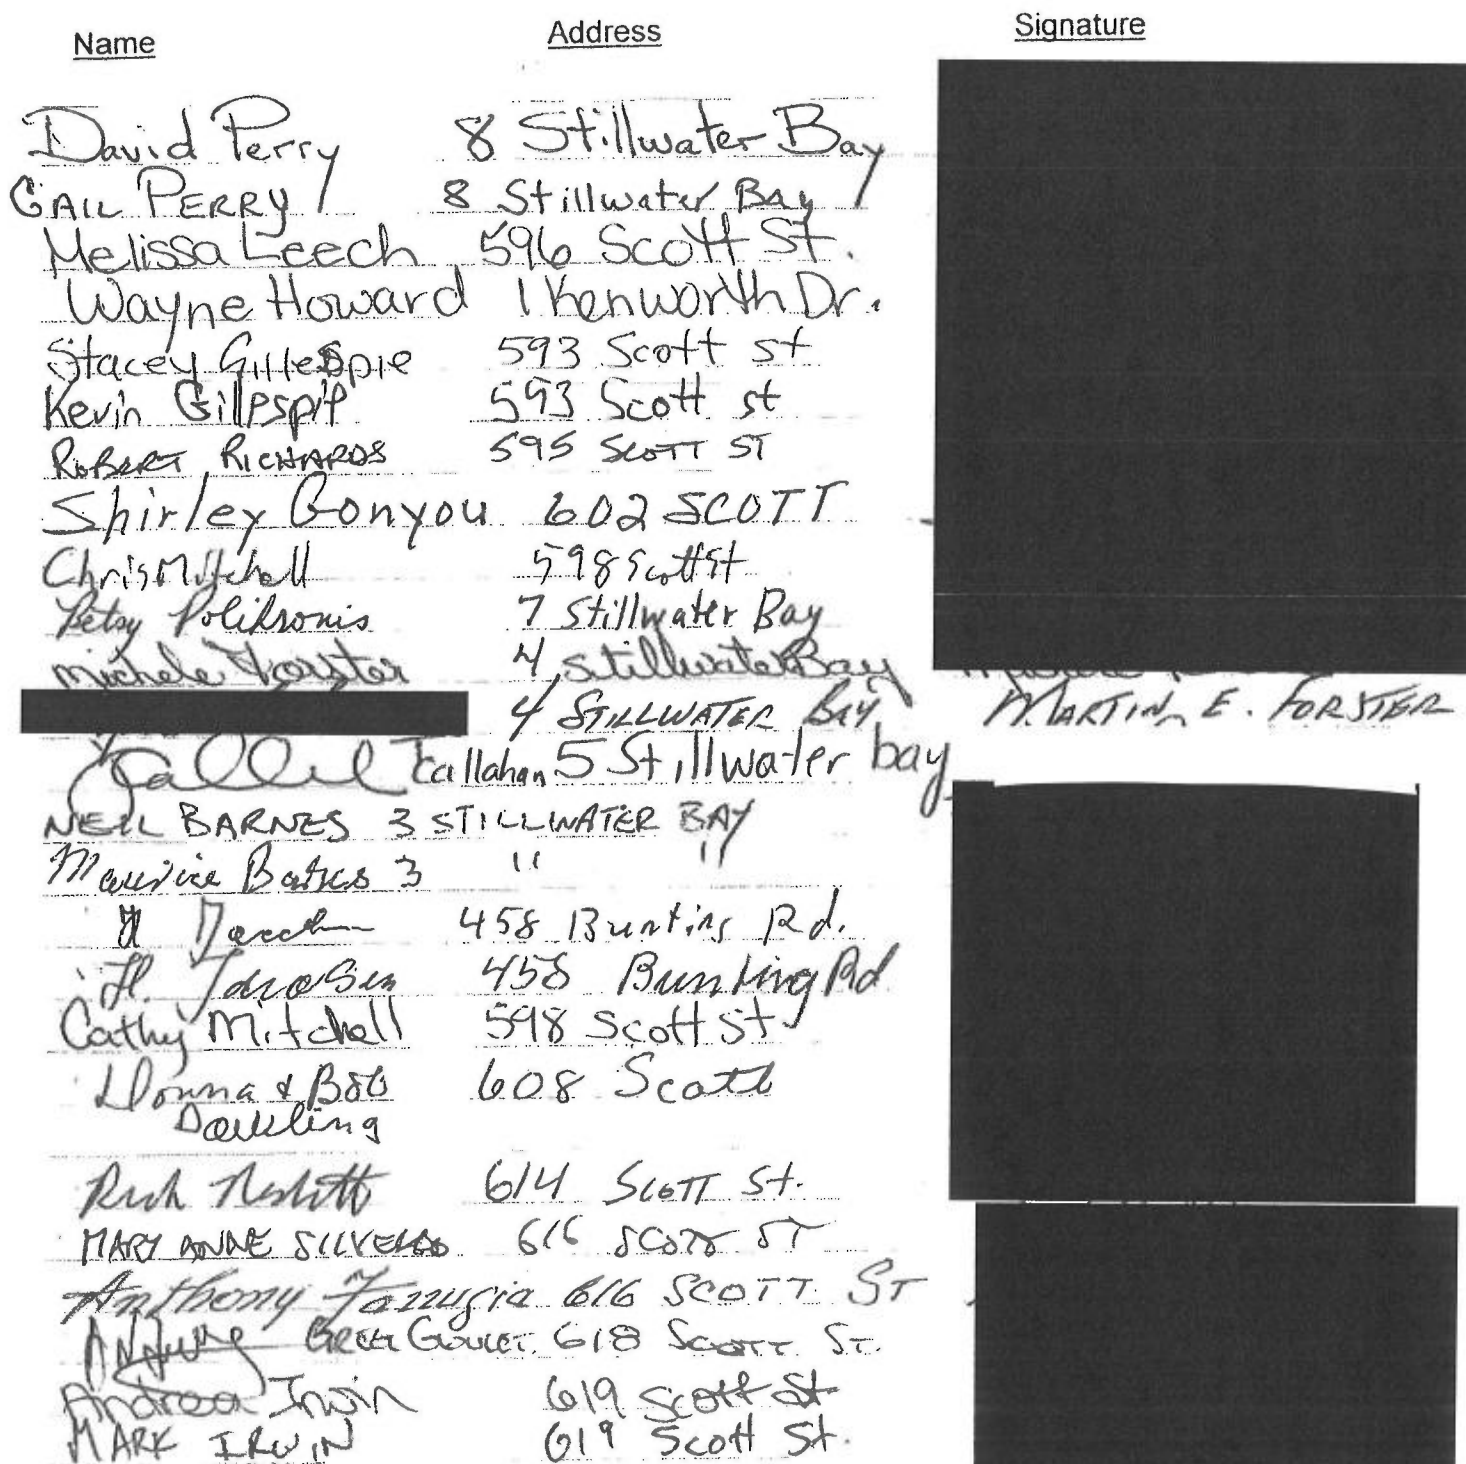 Name Address Signature
David Perry 8 Stillwater Bay
GAIL PERRY 8 Stillwater Bay
Melissa Leech 596 Scott St.
Wayne Howard 1 Kenworth Dr.
Stacey Gillespie 593 Scott st
Kevin Gillespie 593 Scott st
ROBERT RICHARDS 595 SCOTT ST
Shirley Gonyou 602 SCOTT
Chris Mitchell 598 Scott St
Betsy Polihronis 7 Stillwater Bay
Michele Forster 4 Stillwater Bay
4 STILLWATER BAY MARTIN E. FORSTER
Callahan 5 Stillwater bay
NEIL BARNES 3 STILLWATER BAY
Barnes 3 " "
458 Bunting Rd.
458 Bunting Rd
Cathy Mitchell 598 Scott St
Donna & Bob 608 Scott
614 SCOTT St.
MARY ANNE 616 SCOTT ST
Anthony 616 SCOTT ST
GREG GOULET 618 SCOTT ST.
Andrea Irwin 619 Scott St
MARK IRWIN 619 Scott St.